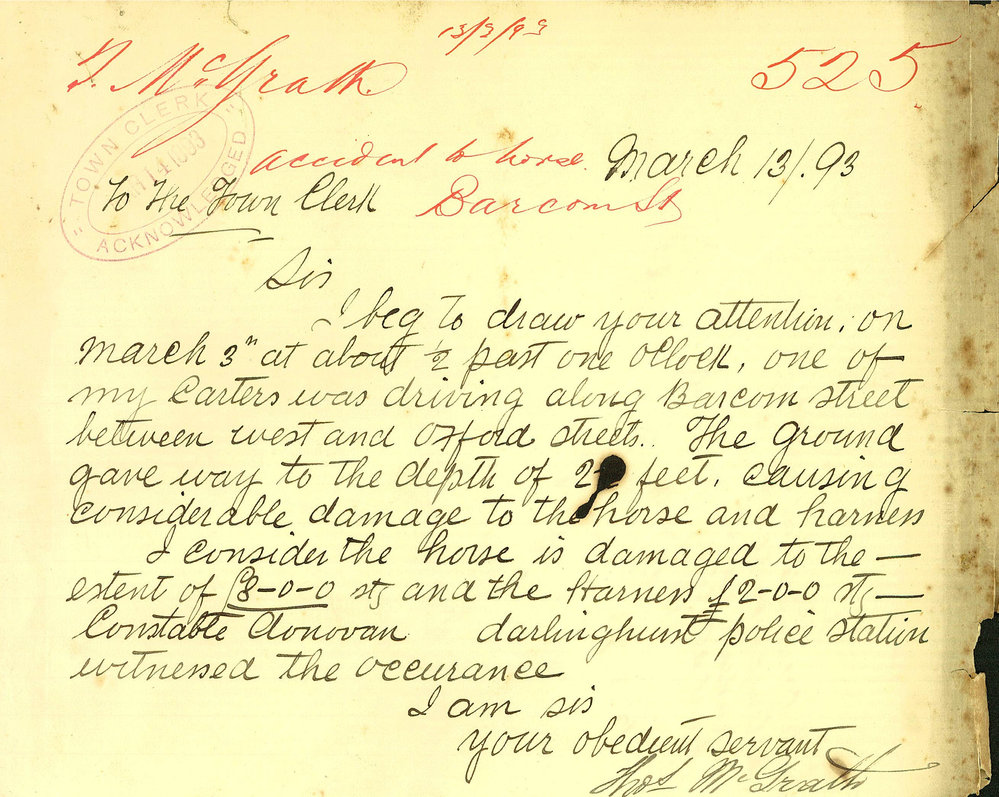 13/3/93
T. McGrath.
525.
TOWN CLERK
ACKNOWLEDGED
accident to horse.
March 13/.93
To The Town Clerk
Barcom St
Sir
I beg to draw your attention, on
March 3rd at about ½ past one oClock, one of
my Carters was driving along Barcom street
between west and Oxford streets. The Ground
gave way to the depth of feet, causing
considerable damage to the horse and harness
I consider the horse is damaged to the —
extent of £8-0-0 stg and the Harness £2-0-0 stg —
Constable Donovan darlinghurst police station
witnessed the occurance
I am sir
your obedient servant
Thos McGrath